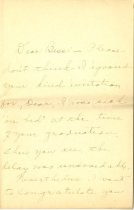 Dear Bess: - Please
don't think I ignored
your kind invitation
for, Dear, I was sick
in bed at the time
of your graduation.
When you see the
delay was unavoidable
Nevertheless I want
to congratulate you